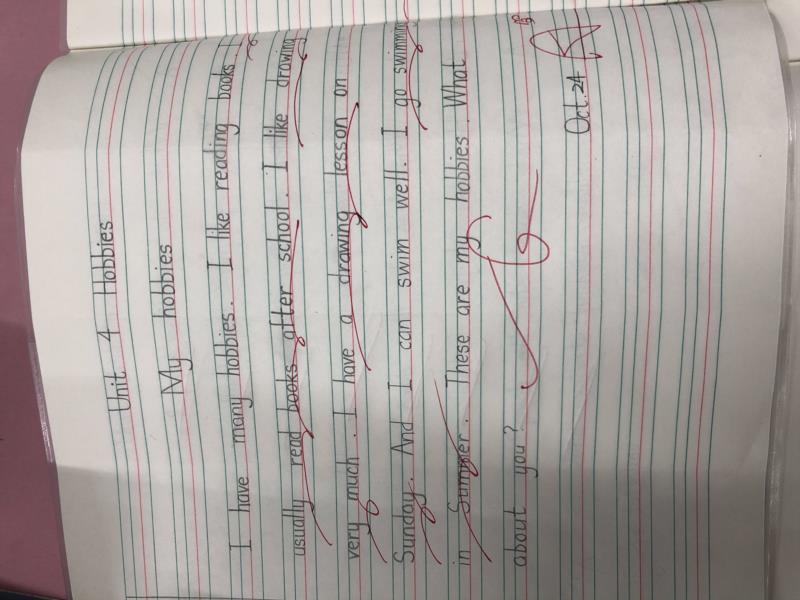 Unit 4 Hobbies
My hobbies
I have many hobbies. I like reading books. I
usually read books after school. I like drawing
very much. I have a drawing lesson on
Sunday. And I can swim well. I go swimming
in Summer. These are my hobbies. What
about you?
Oct.24